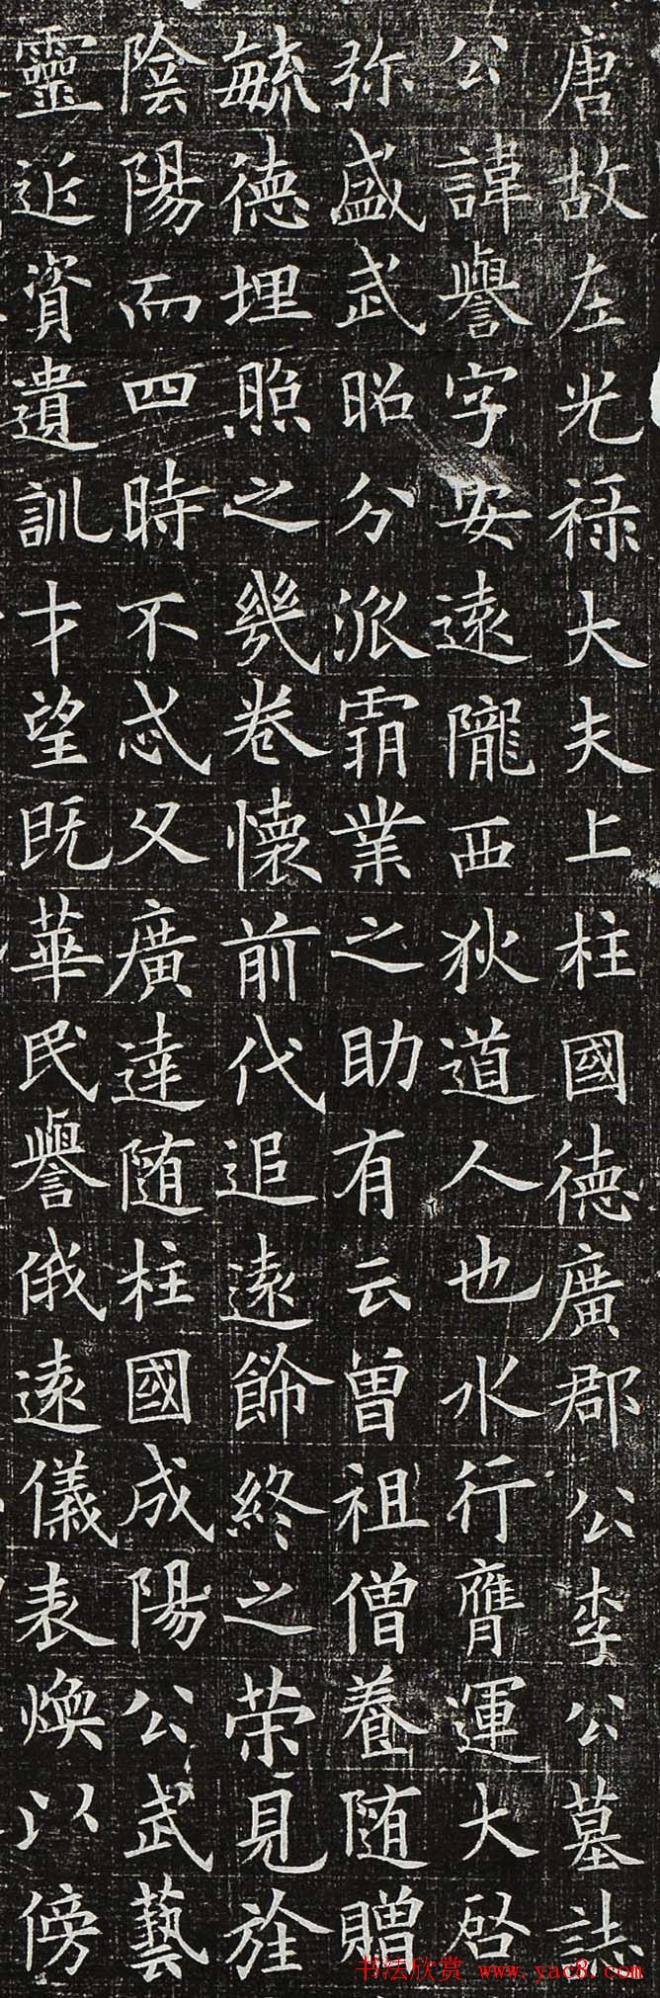 唐故左光禄大夫上柱國德廣郡公李公墓誌
公諱譽字安遠隴西狄道人也水行膺運大啓
弥盛武昭分派霸業之助有云曾祖僧養随贈
毓德埋照之幾卷懷前代追遠飾終之荣見旌
陰陽而四時不忒父廣達随柱國成陽公武藝
靈近資遺訓才望既華民譽俄遠儀表煥以傍
书法欣赏 www.yac8.com